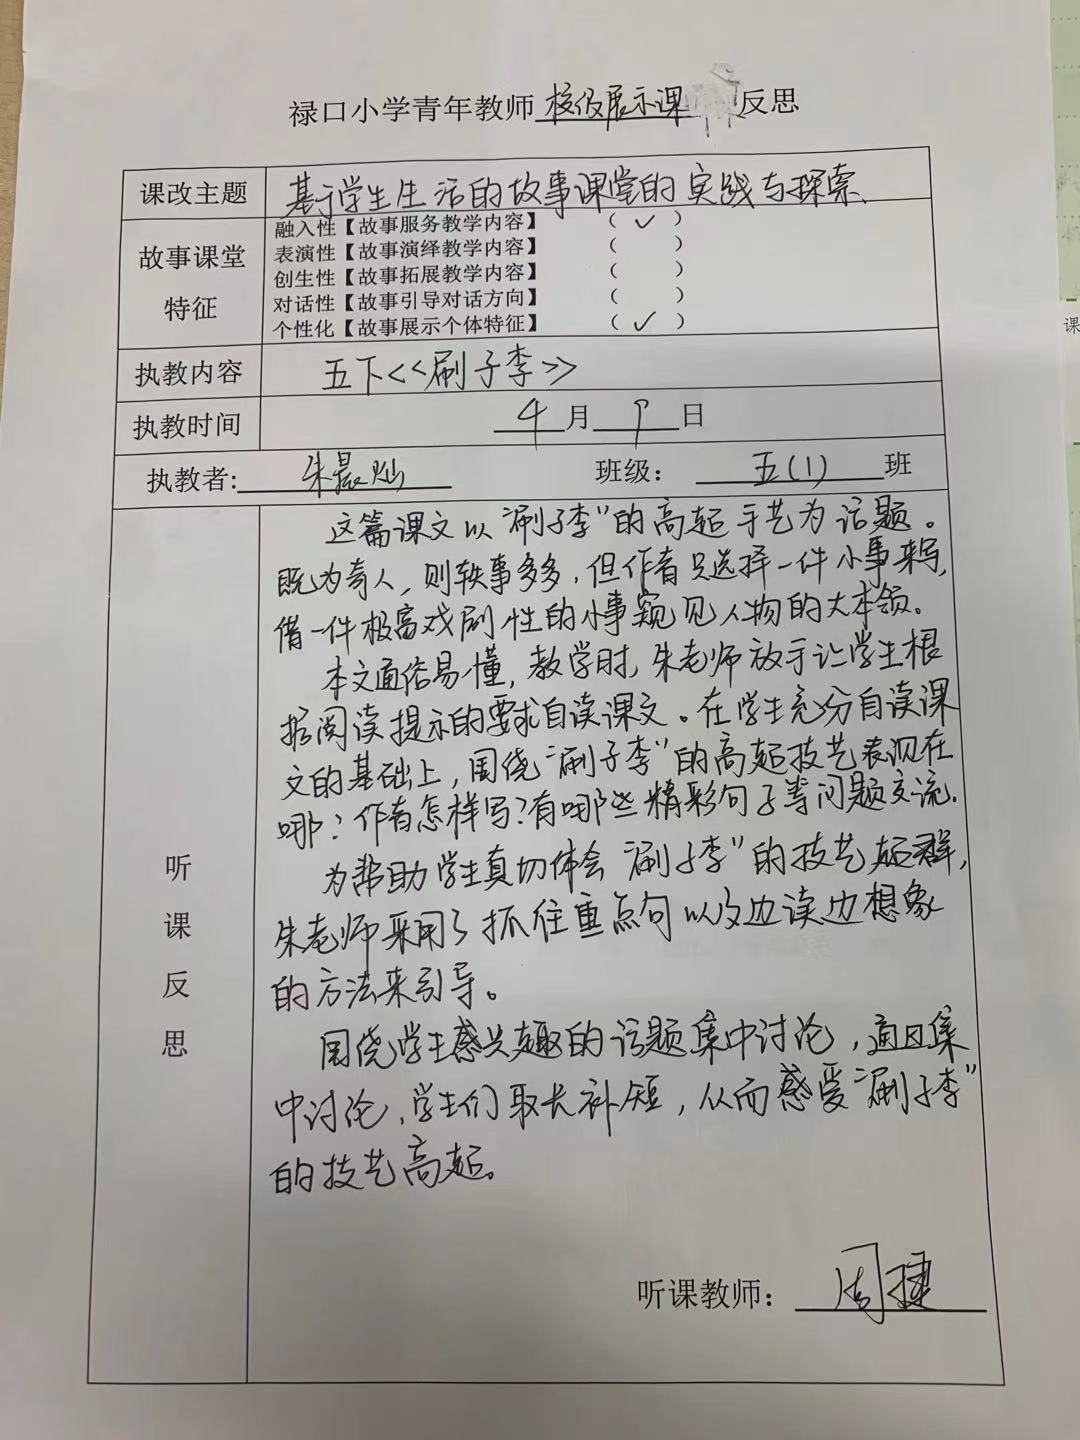 禄口小学青年教师校级展示课反思
课改主题 基于学生生活的故事课堂的实践与探索
故事课堂
特征
融入性【故事服务教学内容】 （ ✓ ）
表演性【故事演绎教学内容】 （ ）
创生性【故事拓展教学内容】 （ ）
对话性【故事引导对话方向】 （ ）
个性化【故事展示个体特征】 （ ✓ ）
执教内容 五下<<刷子李>>
执教时间 4月9日
执教者: 朱晨灿 班级： 五(1) 班
听课反思
这篇课文以“刷子李”的高超手艺为话题。
既为奇人，则轶事多多，但作者只选择一件小事来写，
借一件极富戏剧性的小事窥见人物的大本领。
本文通俗易懂，教学时，朱老师放手让学生根
据阅读提示的要求自读课文。在学生充分自读课
文的基础上，围绕“刷子李”的高超技艺表现在
哪？作者怎样写？有哪些精彩句子等问题交流.
为帮助学生真切体会“刷子李”的技艺超群，
朱老师采用了抓住重点句以及边读边想象
的方法来引导。
围绕学生感兴趣的话题集中讨论，通过集
中讨论，学生们取长补短，从而感受“刷子李”
的技艺高超。
听课教师： 周捷
课